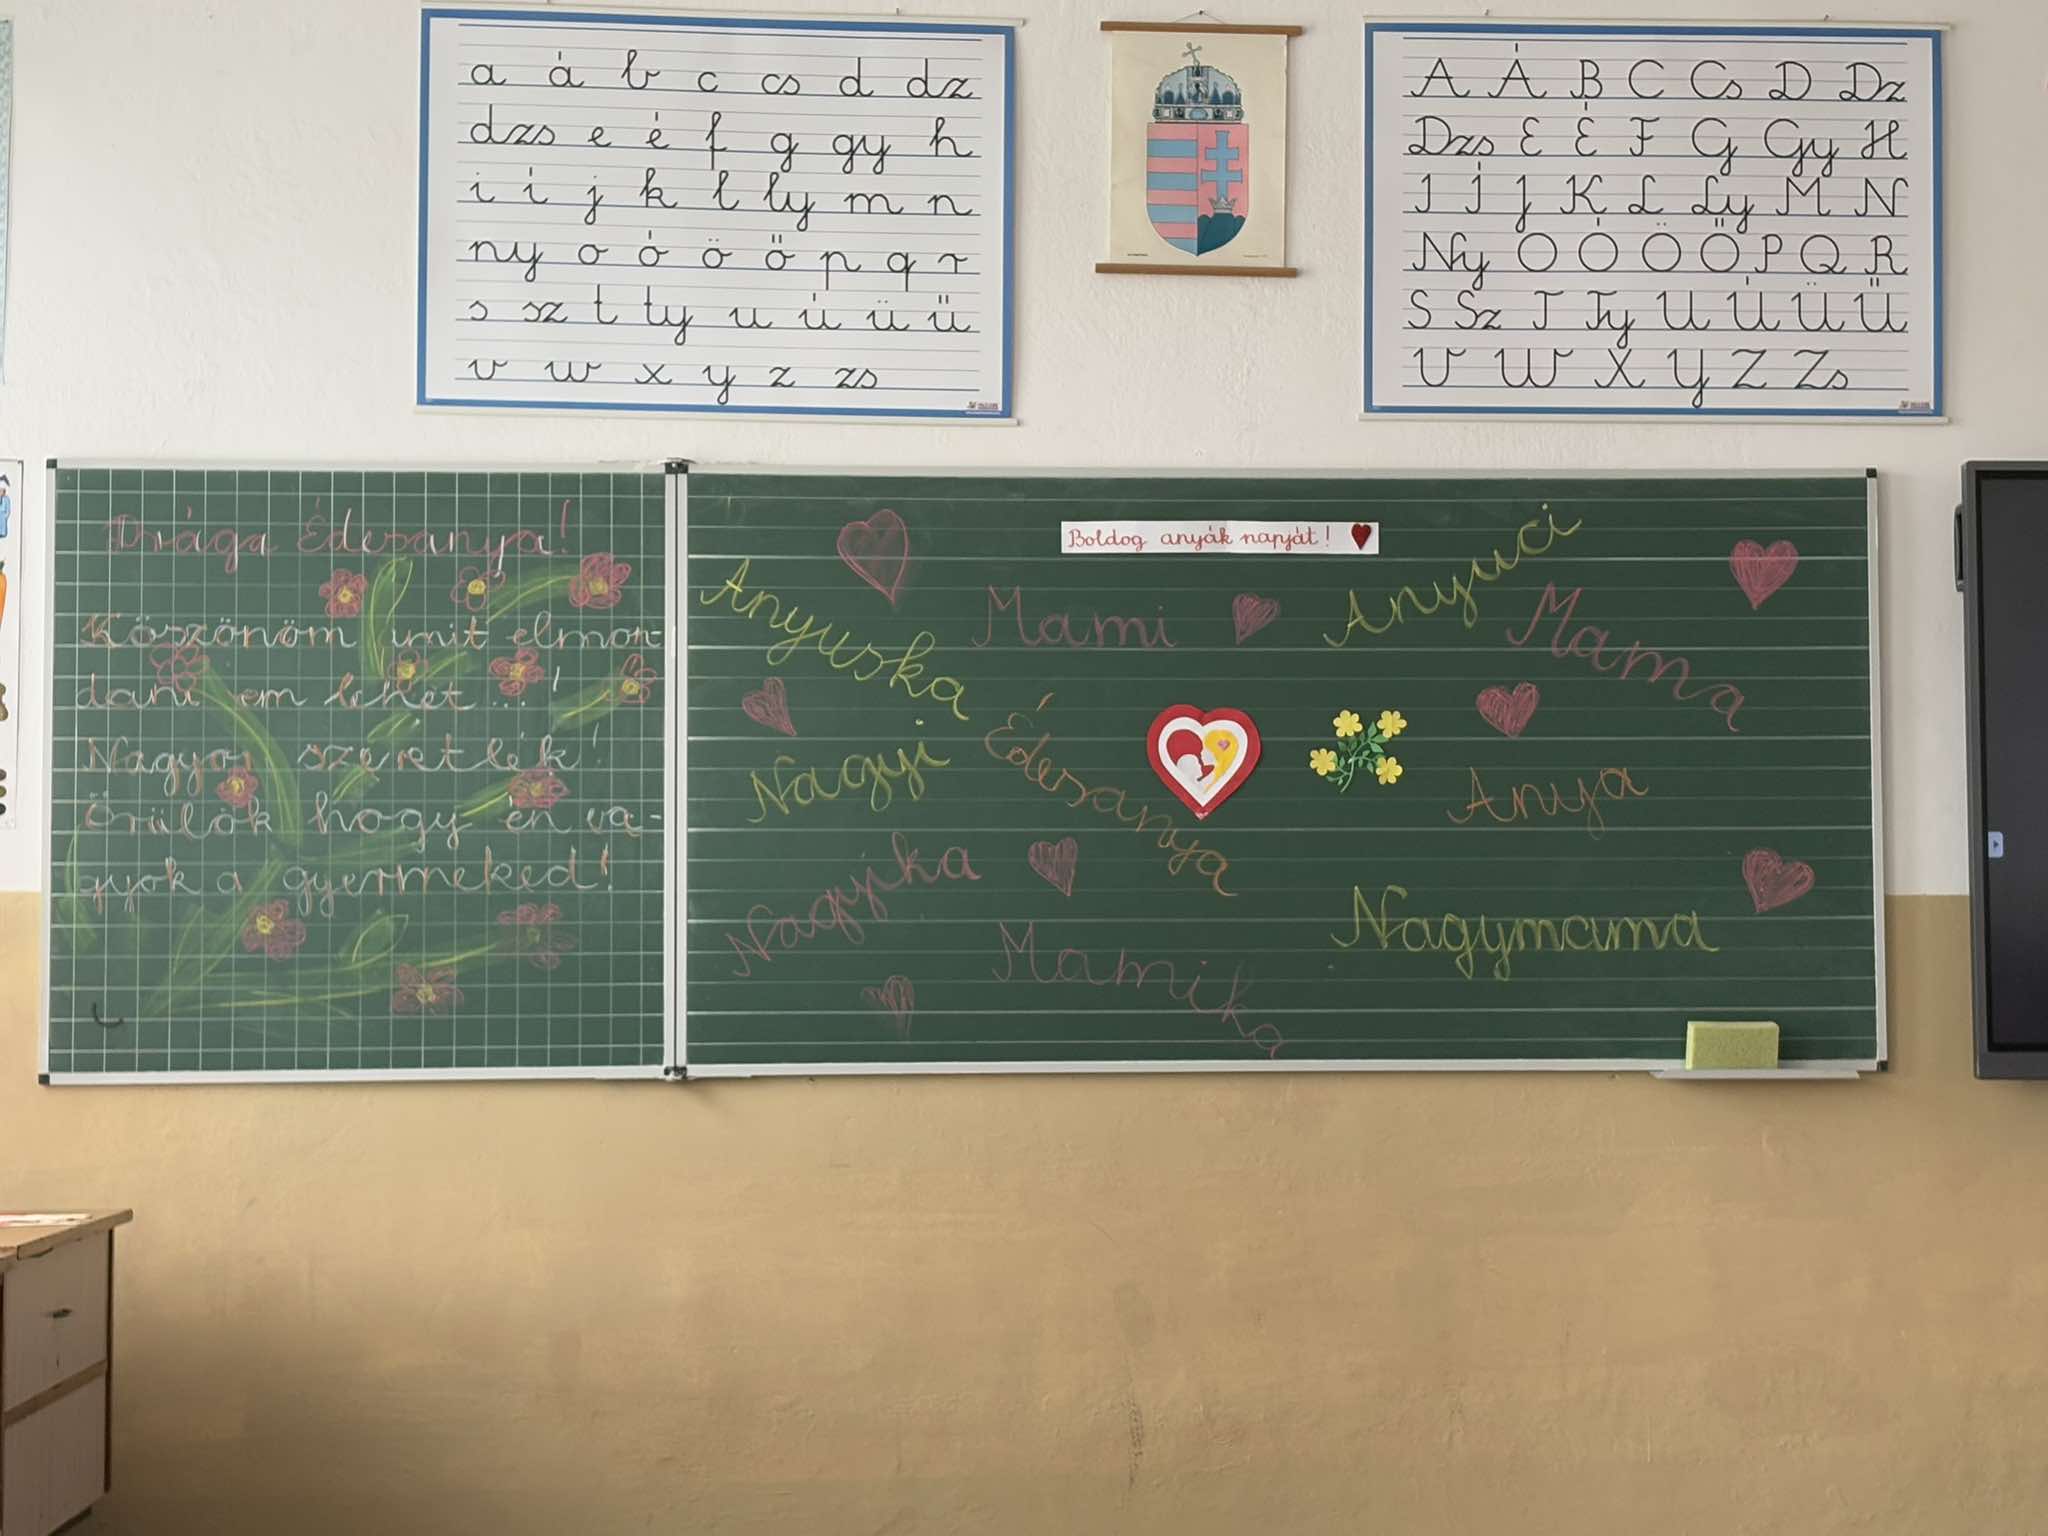 a á b c cs d dz
dzs e é f g gy h
i í j k l ly m n
ny o ó ö ő p q r
s sz t ty u ú ü ű
v w x y z zs
A Á B C Cs D Dz
Dzs E É F G Gy H
I Í J K L Ly M N
Ny O Ó Ö Ő P Q R
S Sz T Ty U Ú Ü Ű
V W X Y Z Zs
Drága Édesanya!
Köszönöm amit elmon-
dani sem lehet...!
Nagyon szeretlek!
Örülök hogy én va-
gyok a gyermeked!
Boldog anyák napját!
Anyuska
Mami
Anyuci
Mama
Nagyi
Édesanya
Anya
Nagyika
Mamika
Nagymama